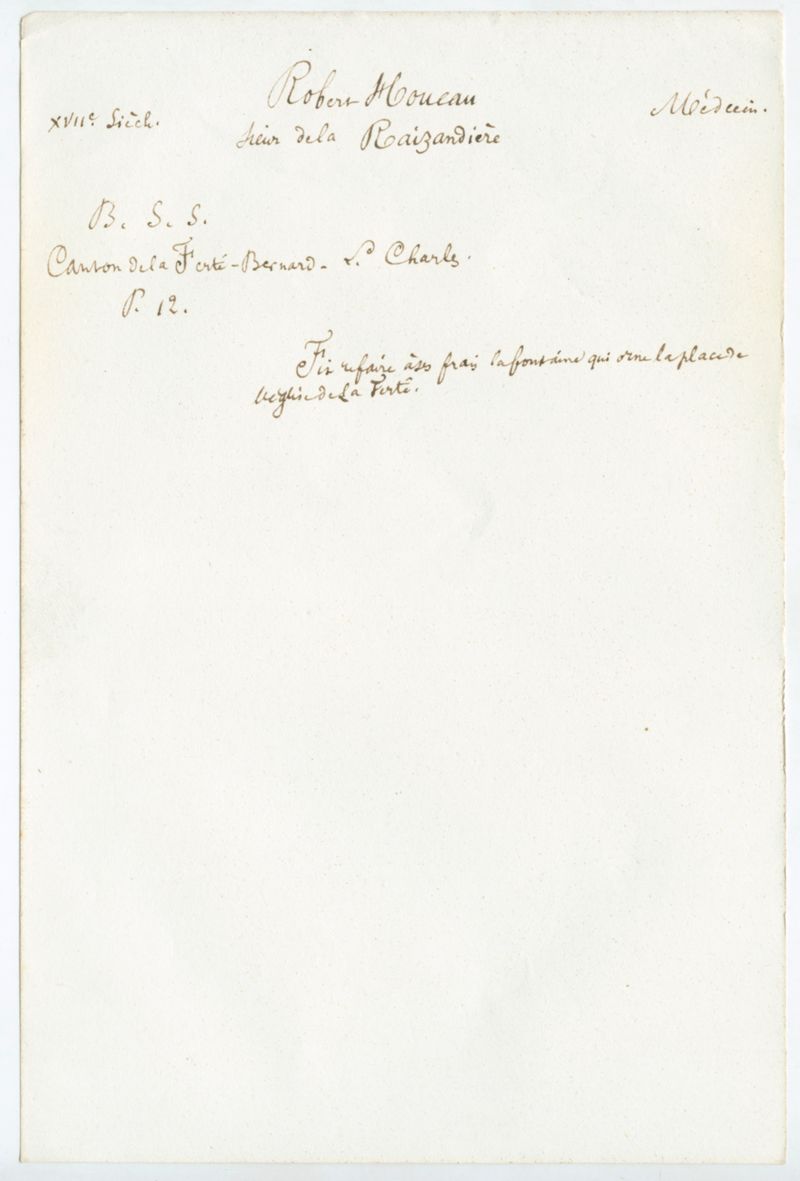 Robert Houeau
XVIIe Siècle.
Médecin.
sieur de la Raizandière
B. S. S.
Canton de la Ferté-Bernard. Ld Charles.
P. 12.
Fit refaire à ses frais la fontaine qui orne la place de
l'église de La Ferté.